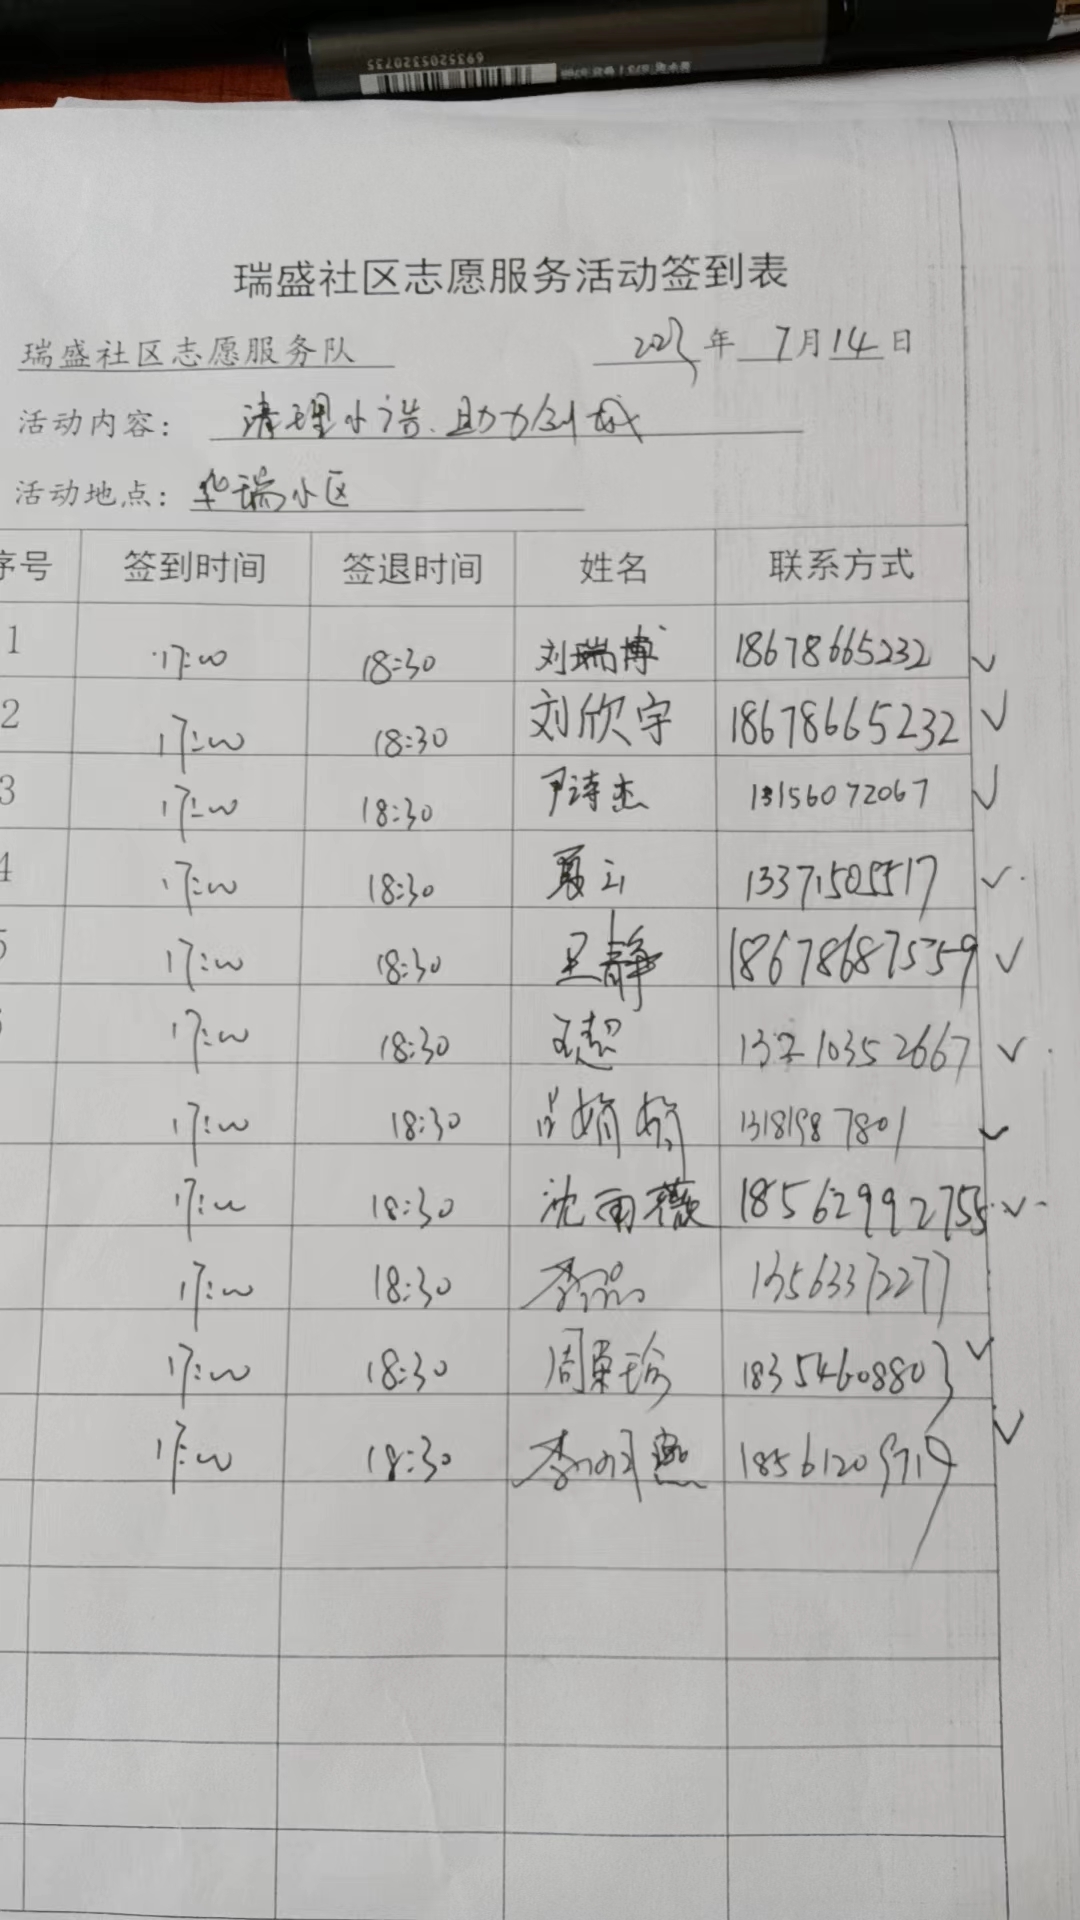 6935205320735
瑞盛社区志愿服务活动签到表
瑞盛社区志愿服务队 2023年 7月14日
活动内容： 清理小广告.助力创城
活动地点： 华瑞小区
序号 签到时间 签退时间 姓名 联系方式
1 17:00 18:30 刘瑞博 18678665232 ✓
2 17:00 18:30 刘欣宇 18678665232 ✓
3 17:00 18:30 尹诗杰 13156072067 ✓
4 17:00 18:30 夏云 13371505517 ✓
5 17:00 18:30 王静 18678687559 ✓
17:00 18:30 ✓
17:00 18:30 13181987801 ✓
17:00 18:30 沈雨薇 18562992755 ✓
17:00 18:30 13563372277
17:00 18:30 周荣珍 18354608803 ✓
17:00 18:30 李明燕 ✓